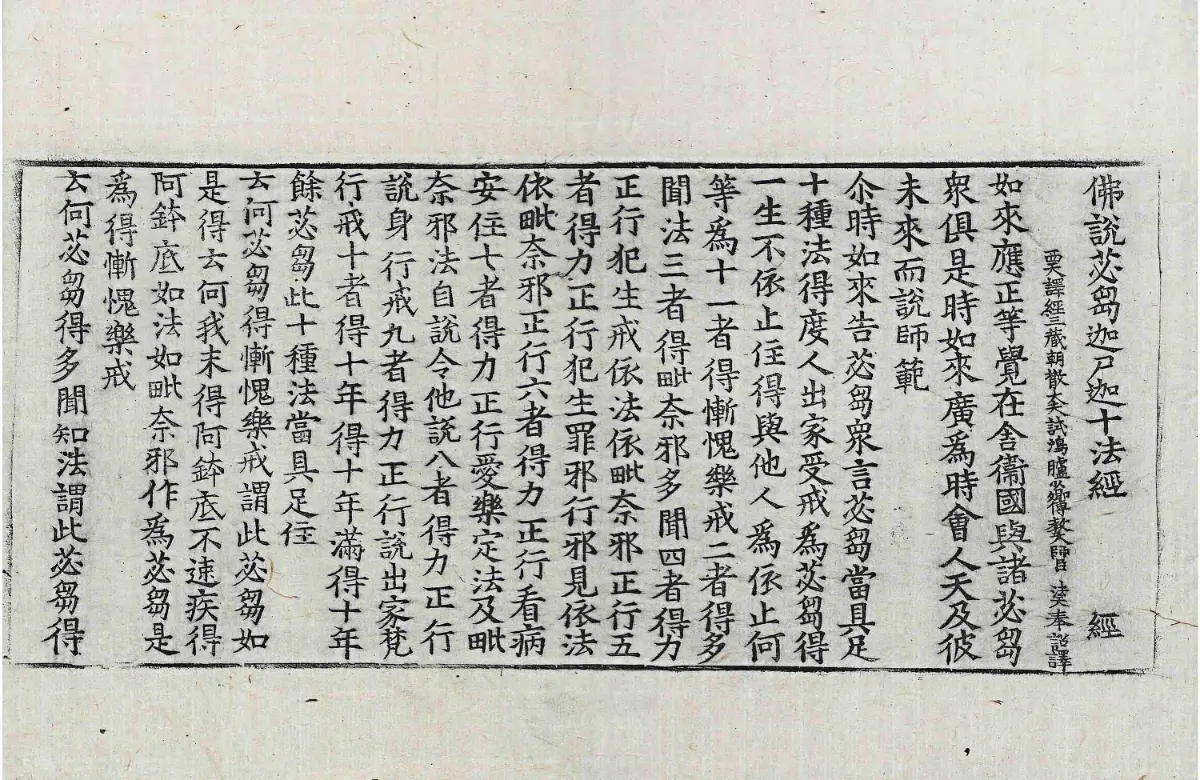 佛說苾芻迦尸迦十法經 經
譯經三藏朝散大夫試鴻臚 傳教大師 奉 詔譯
如來應正等覺在舍衞國與諸苾芻
衆俱是時如來廣爲時會人天及彼
未來而說師範
尒時如來告苾芻衆言苾芻當具足
十種法得度人出家受戒爲苾芻得
一生不依止住得與他人爲依止何
等爲十一者得慚愧樂戒二者得多
聞法三者得毗奈邪多聞四者得力
正行犯生戒依法依毗奈邪正行五
者得力正行犯生罪邪行邪見依法
依毗奈邪正行六者得力正行看病
安住七者得力正行愛樂定法及毗
奈邪法自說令他說八者得力正行
說身行戒九者得力正行說出家梵
行戒十者得十年得十年滿得十年
餘苾芻此十種法當具足住
云何苾芻得慚愧樂戒謂此苾芻如
是得云何我未得阿鉢底不速疾得
阿鉢底如法如毗奈邪作爲苾芻是
爲得慚愧樂戒
云何苾芻得多聞知法謂此苾芻得